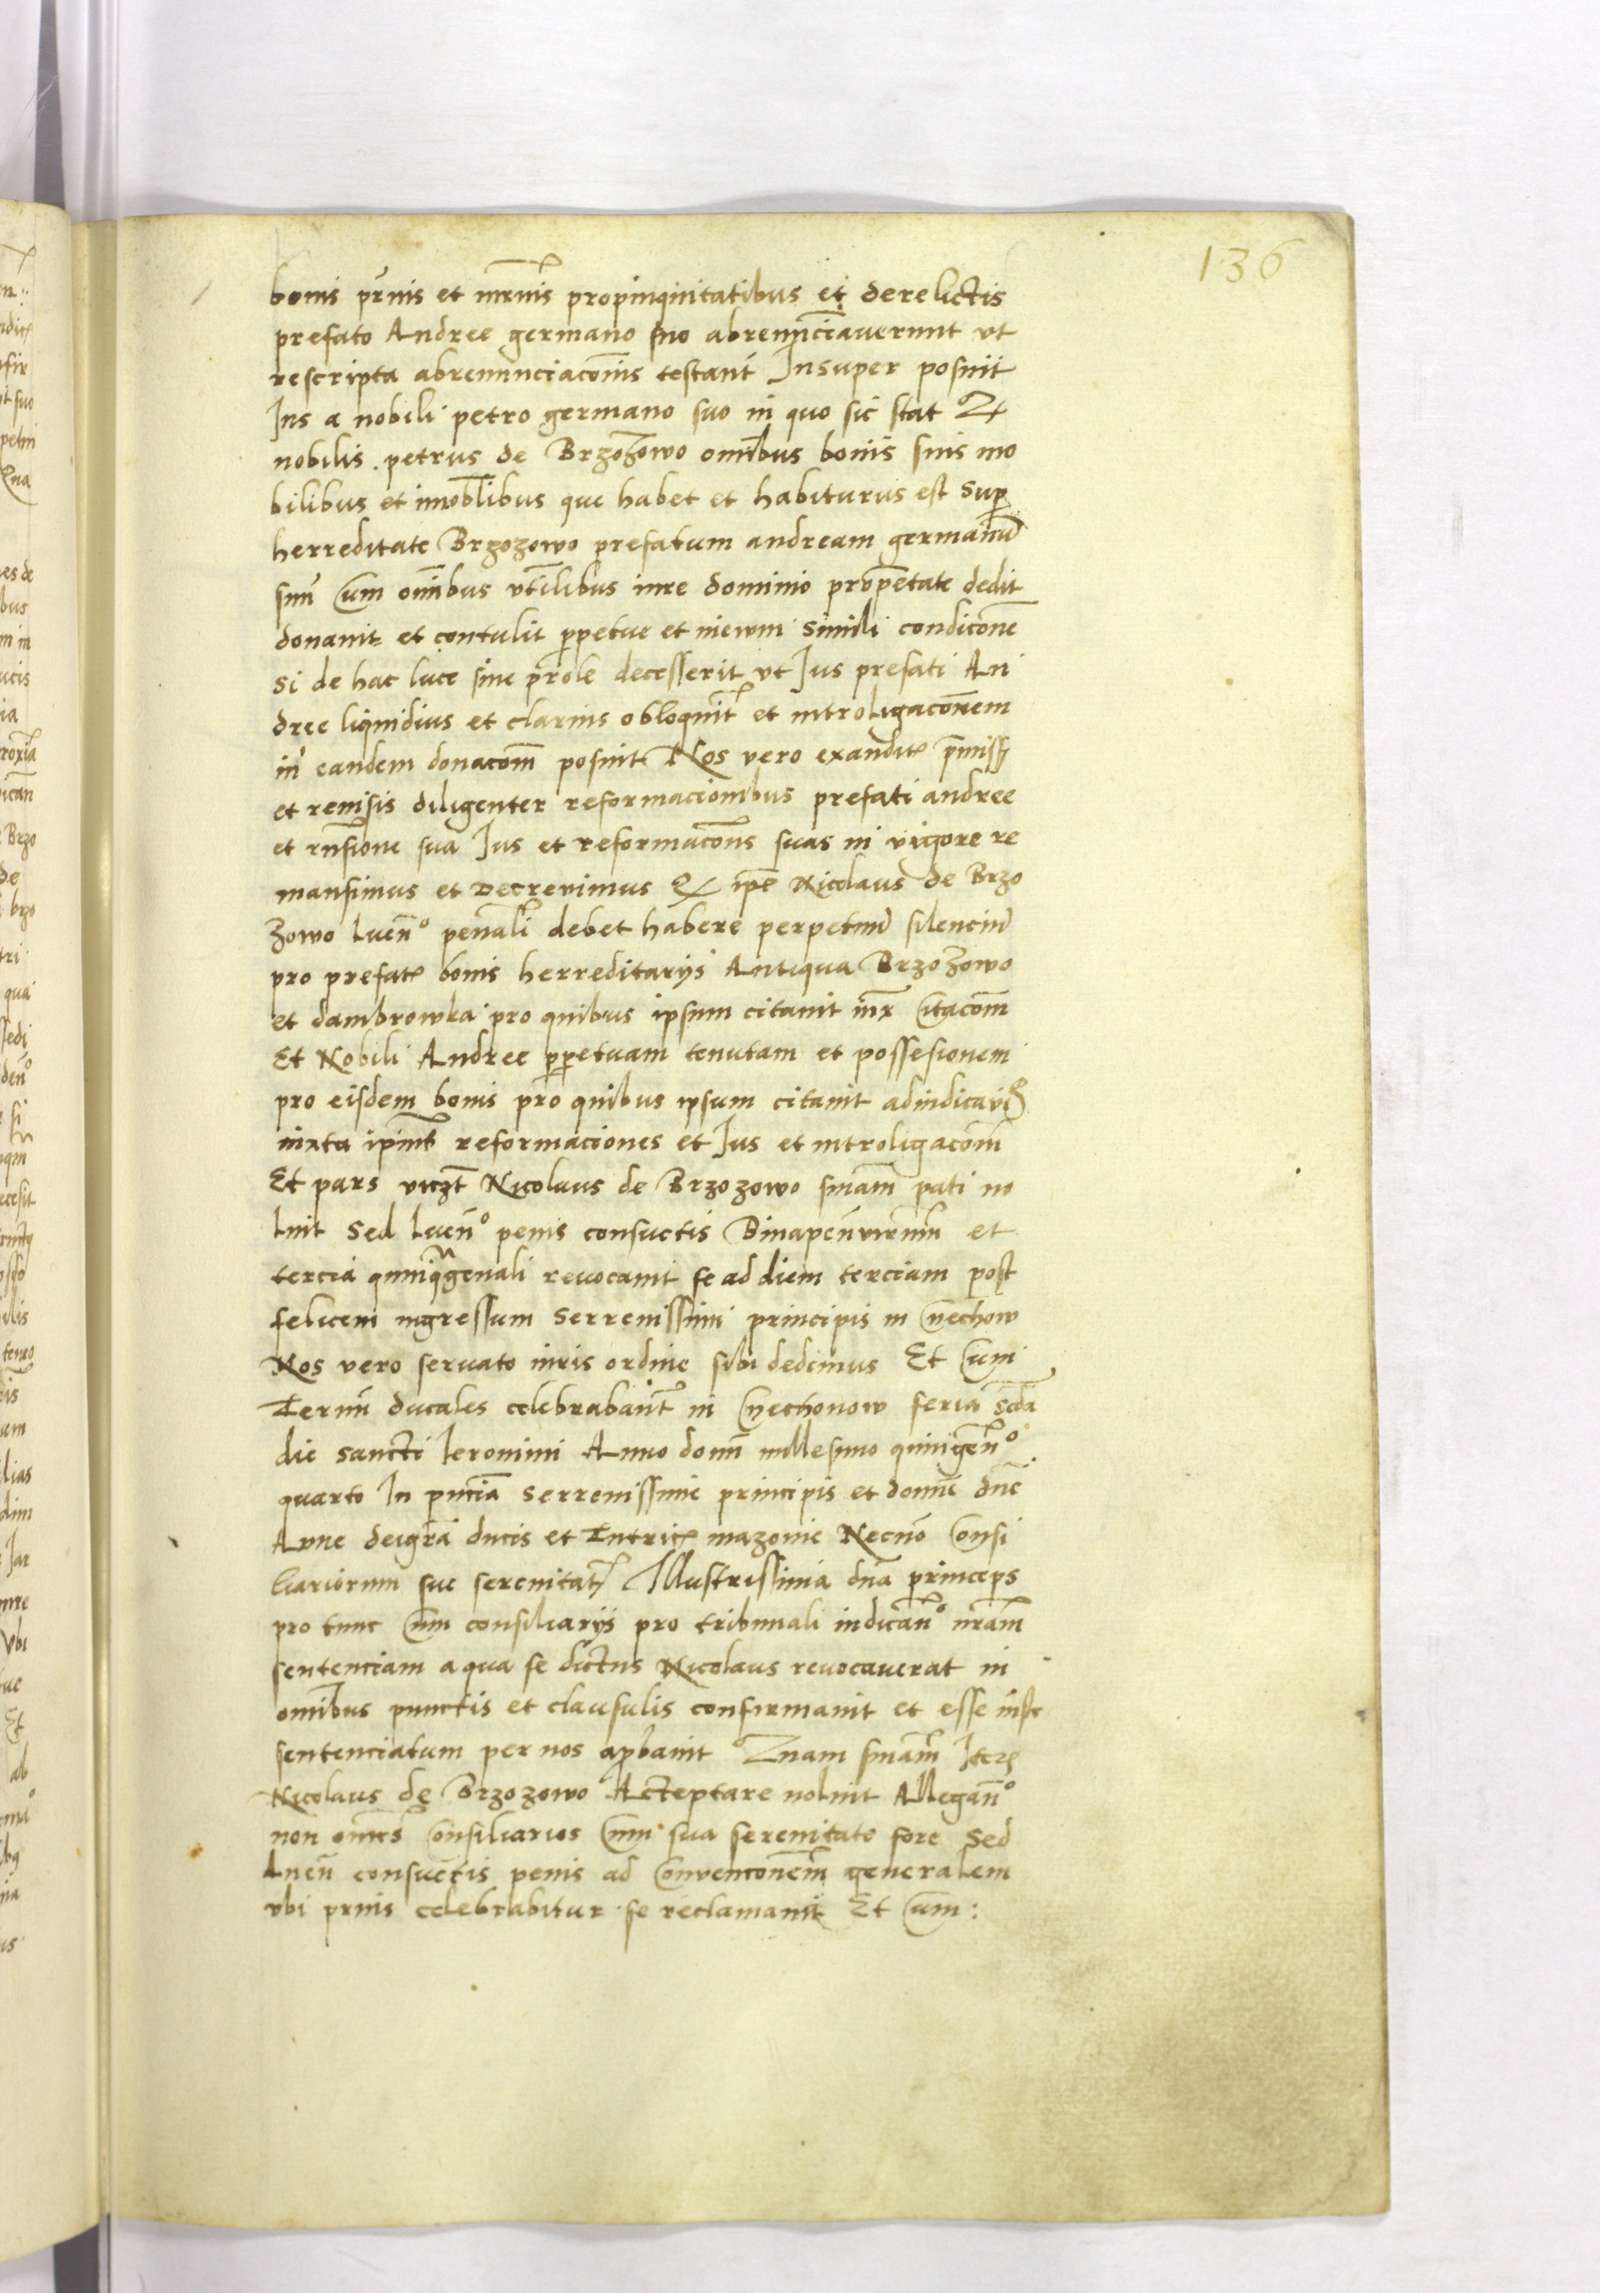 136
bonis pr̃nis et mr̃nis propinquitatibus et derelictis
prefato Andree germano suo abrenũciaverunt vt
rescripta abrenunciacoñis testant̃ Insuper posuit
Ius a nobili petro germano suo in quo sic stat
nobilis petrus de Brzozowo om̃ibus bonis suis mo
bilibus et imoblibus que habet et habiturus est Sup̱
herreditate Brzozowo prefatum andream germanũ
suũ Cum om̃ibus vtilibus iure dominio prop̱etate dedit
donauit et contulit p̱petue et in ewm simili condicõne
si de hac luce sine prole decesserit vt Jus prefati An
dree liquidius et clarius obloquit̃ et introligacõnem
in eandem donacom̃ posuit Nos vero exaudit̃ p̃miss̃
et reuisis diligenter reformacionibus prefati andree
et sua Jus et reformacoñs suas in vigore re
mansimus et decreuimus ip̃e Nicolaus de Brzo
zowo Lueñº penal̃i debet habere perpetuũ silenciũ
pro prefat̃ bonis herreditarijs Antiqua Brzozowo
et dambrowka pro quibus ipsum citauit iux̃ Citacom̃
Et Nobili Andree p̱petuam tenutam et possesionem
pro eisdem bonis pro quibus ipsum citauit adiudicauim̃
iuxta reformaciones et Jus et introligacom̃
Et pars viczt̃ Nicolaus de Brzozowo sniam̃ pati no
luit Sed Lueñº penis consuetis et
tercia quinq̃genali reuocauit se ad diem terciam post
felicem ingressum Serrenissimi principis in Czechow
Nos vero seruato iuris ordine sibi dedimus Et Cum
Termĩ ducales celebrabant̃ in Czechonow feria scđa
die sancti Ieronimi Anno domĩ millesimo quingen̄º
quarto In pn̄cia Serrenissime principis et domĩe dñe
Anne deigr̃a ducis et mazouie Necnõ Consi
liariorum sue serenitat̃ Illustrissima dña princeps
pro tunc Cum consiliarijs pro tribunali iudicañº nr̃am
sentenciam a qua se dictus Nicolaus reuocauerat in
om̃ibus punctis et clausulis confirmauit et esse iuste
sentenciatum per nos ap̱bauit sniam̃ Iter̃
Nicolaus de Brzozowo Acteptare noluit Allegañº
non om̃es Consiliarios Cum sua serenitate fore Sed
Lueñ consuetis penis ad Convencõnem generalem
vbi prius celebrabitur se reclamauit Et Cum: